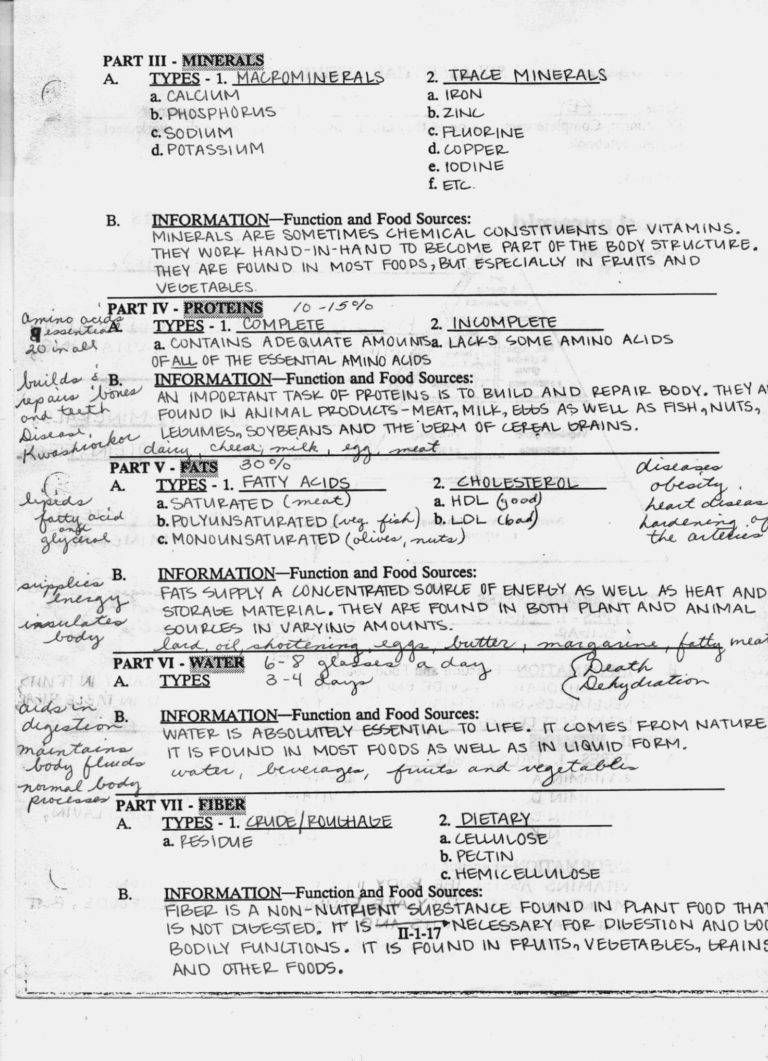 PART III - MINERALS
A. TYPES - 1. MACROMINERALS 2. TRACE MINERALS
a. CALCIUM a. IRON
b. PHOSPHORUS b. ZINC
c. SODIUM c. FLUORINE
d. POTASSIUM d. COPPER
e. IODINE
f. ETC.
B. INFORMATION—Function and Food Sources:
MINERALS ARE SOMETIMES CHEMICAL CONSTITUENTS OF VITAMINS.
THEY WORK HAND-IN-HAND TO BECOME PART OF THE BODY STRUCTURE.
THEY ARE FOUND IN MOST FOODS, BUT ESPECIALLY IN FRUITS AND
VEGETABLES.
PART IV - PROTEINS 10-15%
amino acids
9 essential
20 in all
A. TYPES - 1. COMPLETE 2. INCOMPLETE
a. CONTAINS ADEQUATE AMOUNTS a. LACKS SOME AMINO ACIDS
OF ALL OF THE ESSENTIAL AMINO ACIDS
builds &
repairs bones
and teeth
Disease,
Kwashiorkor
B. INFORMATION—Function and Food Sources:
AN IMPORTANT TASK OF PROTEINS IS TO BUILD AND REPAIR BODY. THEY A
FOUND IN ANIMAL PRODUCTS - MEAT, MILK, EGGS AS WELL AS FISH, NUTS,
LEGUMES, SOYBEANS AND THE GERM OF CEREAL GRAINS.
dairy, cheese, milk, egg, meat
PART V - FATS 30%
A. TYPES - 1. FATTY ACIDS 2. CHOLESTEROL
a. SATURATED (meat) a. HDL (good)
b. POLYUNSATURATED (veg. fish) b. LDL (bad)
c. MONOUNSATURATED (olives, nuts)
diseases
obesity
heart diseas
hardening of
the arteries
lipids
fatty acid
and
glycerol
B. INFORMATION—Function and Food Sources:
FATS SUPPLY A CONCENTRATED SOURCE OF ENERGY AS WELL AS HEAT AND
STORAGE MATERIAL. THEY ARE FOUND IN BOTH PLANT AND ANIMAL
SOURCES IN VARYING AMOUNTS.
lard, oil, shortening, eggs, butter, margarine, fatty meat
supplies
energy
insulates
body
PART VI - WATER 6-8 glasses a day
A. TYPES 3-4 days
Death
Dehydration
aids in
digestion
maintains
body fluids
normal body
processes
B. INFORMATION—Function and Food Sources:
WATER IS ABSOLUTELY ESSENTIAL TO LIFE. IT COMES FROM NATURE
IT IS FOUND IN MOST FOODS AS WELL AS IN LIQUID FORM.
water, beverages, fruits and vegetables
PART VII - FIBER
A. TYPES - 1. CRUDE/ROUGHAGE 2. DIETARY
a. RESIDUE a. CELLULOSE
b. PECTIN
c. HEMICELLULOSE
B. INFORMATION—Function and Food Sources:
FIBER IS A NON-NUTRIENT SUBSTANCE FOUND IN PLANT FOOD THAT
IS NOT DIGESTED. IT IS NECESSARY FOR DIGESTION AND GOO
II-1-17
BODILY FUNCTIONS. IT IS FOUND IN FRUITS, VEGETABLES, GRAINS
AND OTHER FOODS.